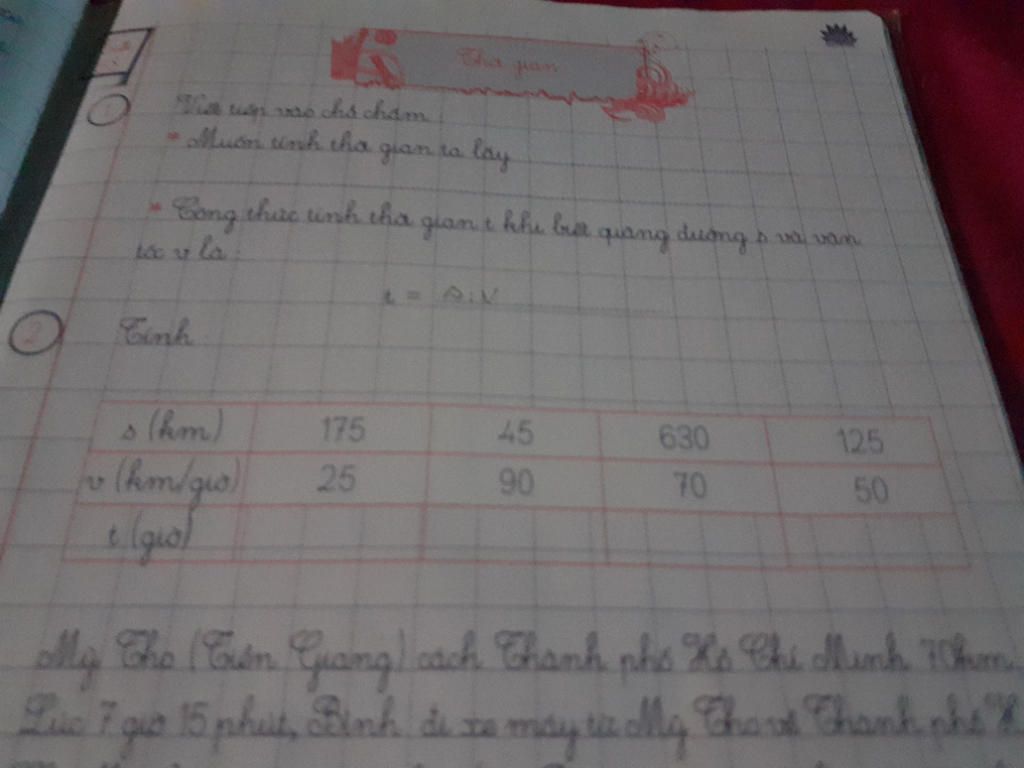 Thời gian
1
Viết tiếp vào chỗ chấm
* Muốn tính thời gian ta lấy
* Công thức tính thời gian t khi biết quãng đường s và vận
tốc v là :
t = s : v
2
Tính
s (km) 175 45 630 125
v (km/giờ) 25 90 70 50
t (giờ)
Mỹ Tho (Tiền Giang) cách Thành phố Hồ Chí Minh 70km.
Lúc 7 giờ 15 phút, Bình đi xe máy từ Mỹ Tho về Thành phố H